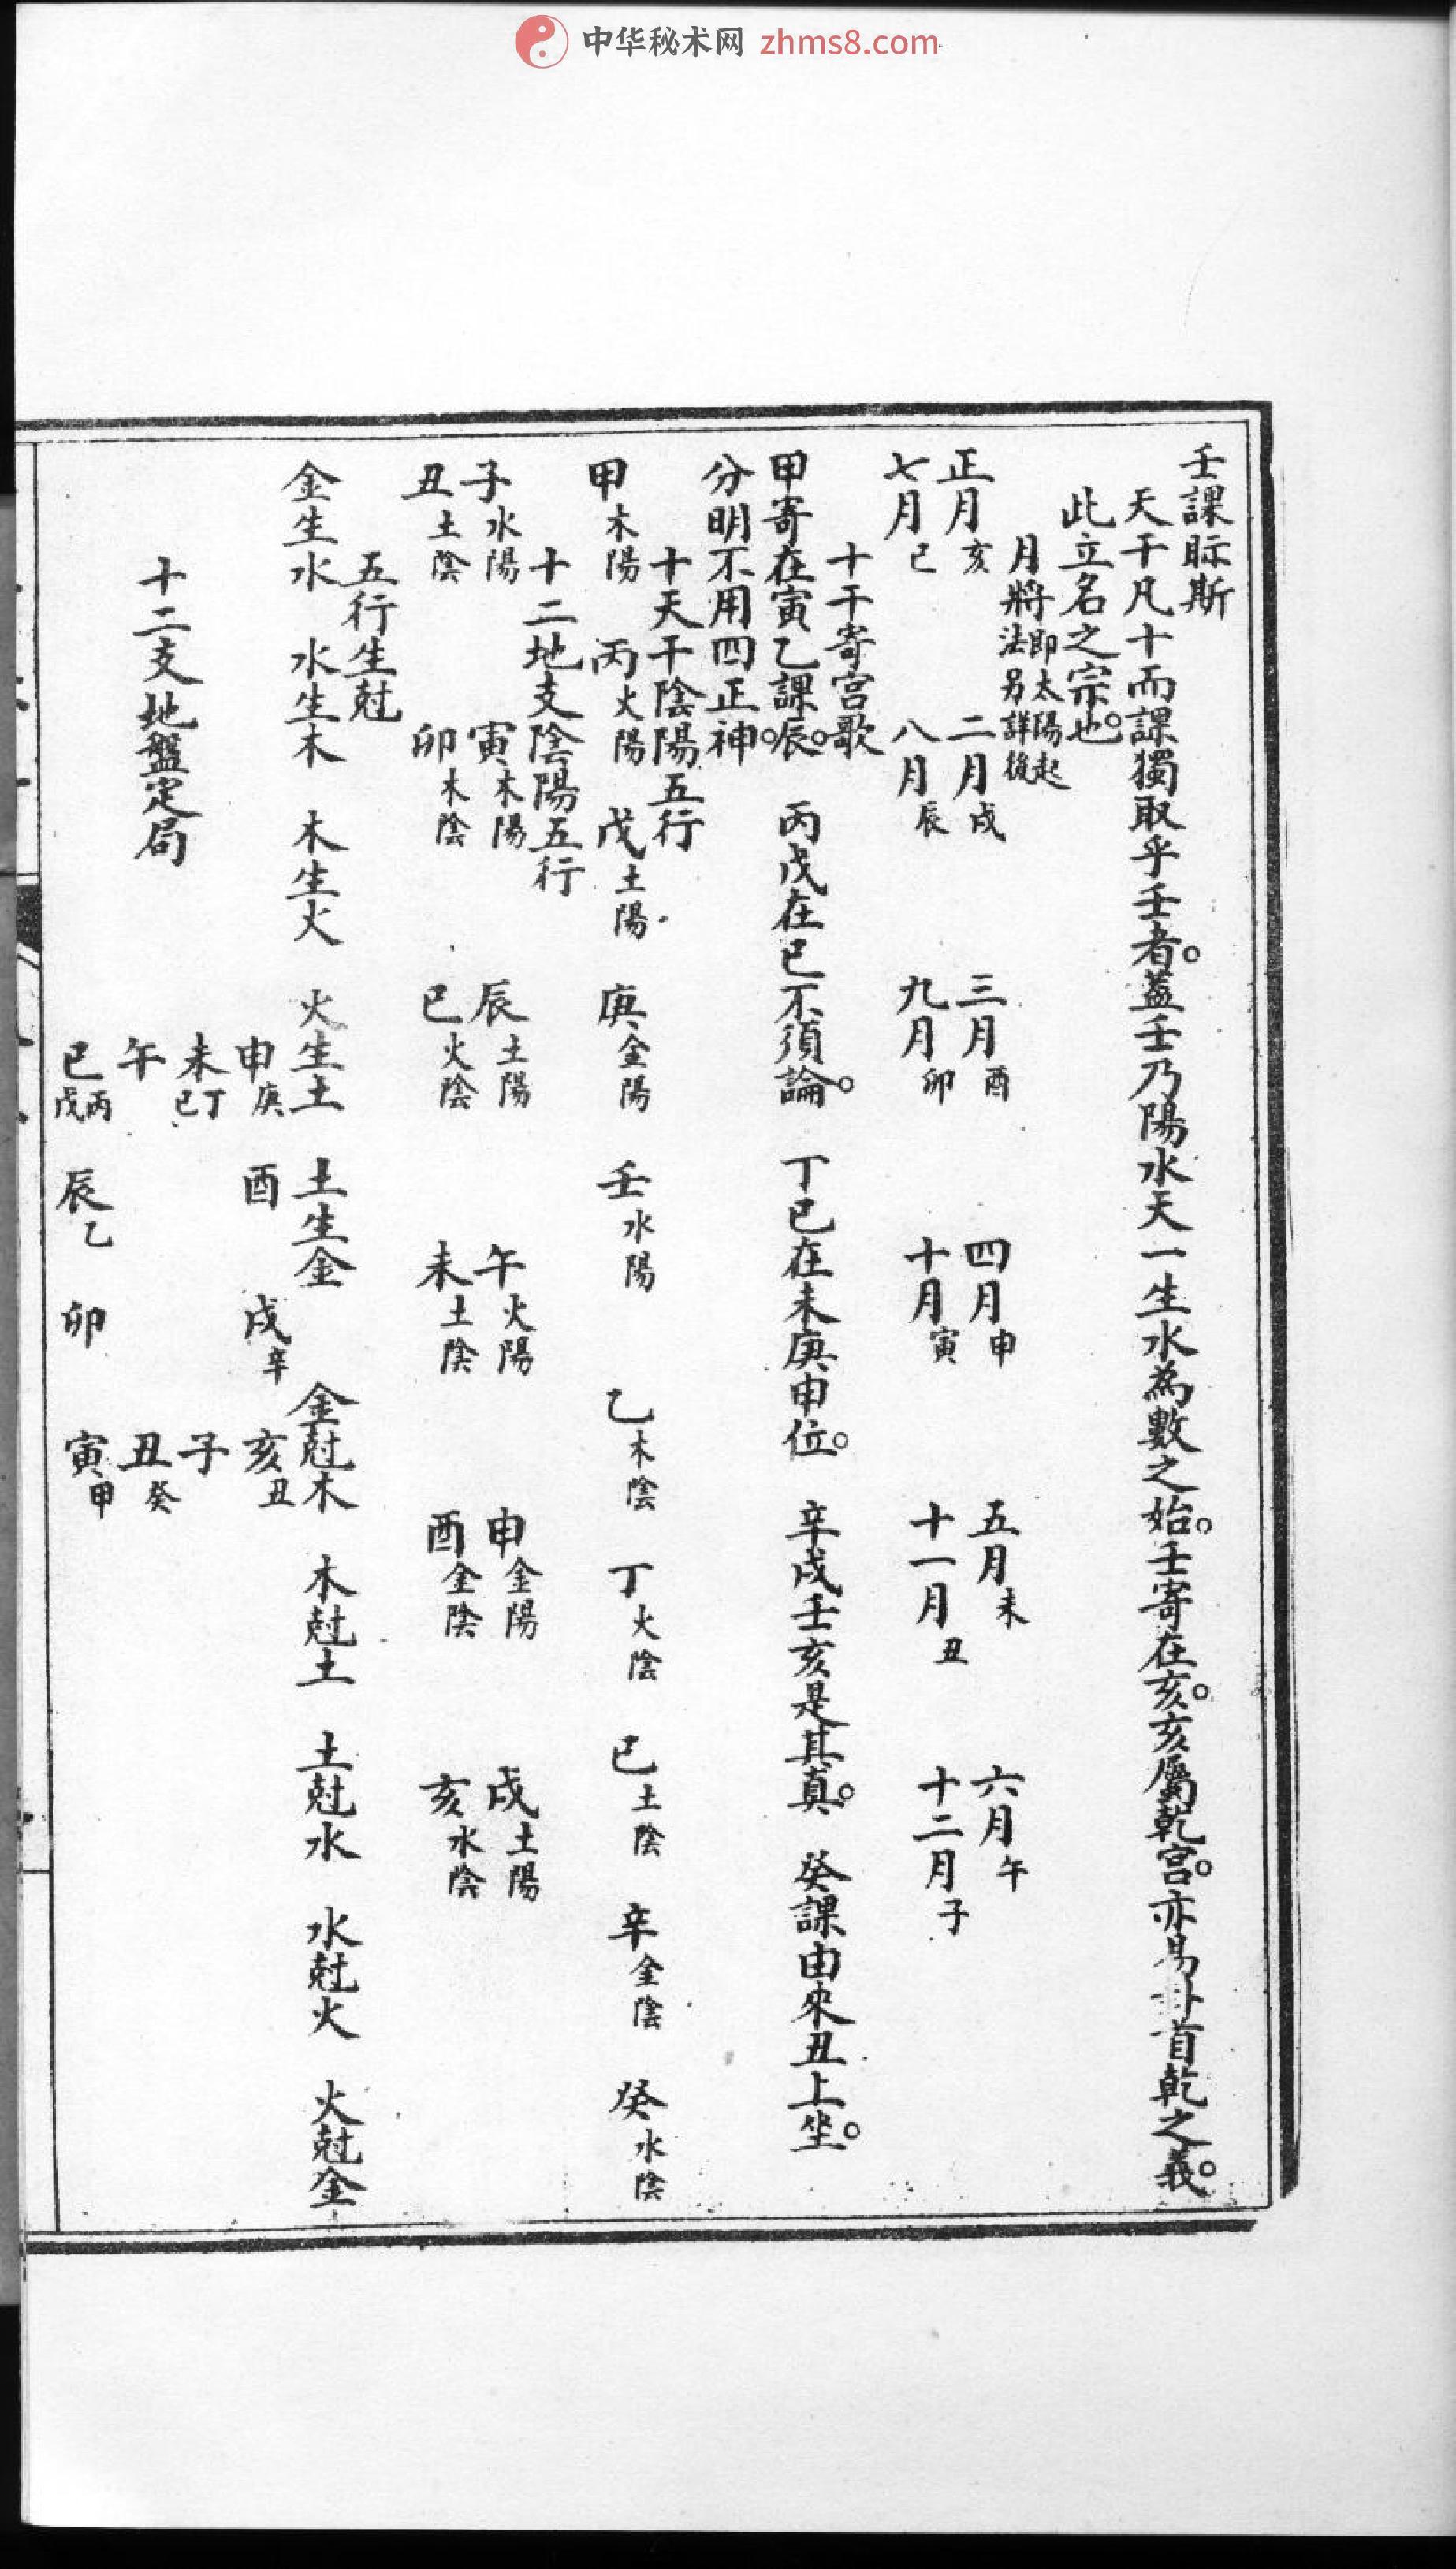 中华秘术网 zhms8.com
壬課眎斯
天干凡十而課獨取乎壬者。蓋壬乃陽水天一生水為數之始。壬寄在亥。亥屬乾宮。亦易卦首乾之義。
此立名之宗也。
月將即太陽起法另詳後
正月亥 二月戌 三月酉 四月申 五月未 六月午
七月巳 八月辰 九月卯 十月寅 十一月丑 十二月子
十干寄宮歌
甲寄在寅乙課辰。 丙戊在巳不須論。 丁己在未庚申位。 辛戌壬亥是其真。 癸課由來丑上坐。
分明不用四正神。
十天干陰陽五行
甲木陽 丙火陽 戊土陽 庚金陽 壬水陽 乙木陰 丁火陰 己土陰 辛金陰 癸水陰
十二地支陰陽五行
子水陽 寅木陽 辰土陽 午火陽 申金陽 戌土陽
丑土陰 卯木陰 巳火陰 未土陰 酉金陰 亥水陰
五行生尅
金生水 水生木 木生火 火生土 土生金 金尅木 木尅土 土尅水 水尅火 火尅金
十二支地盤定局
申庚 酉 戌辛 亥丑
未丁己 子
午 丑癸
巳丙戊 辰乙 卯 寅甲